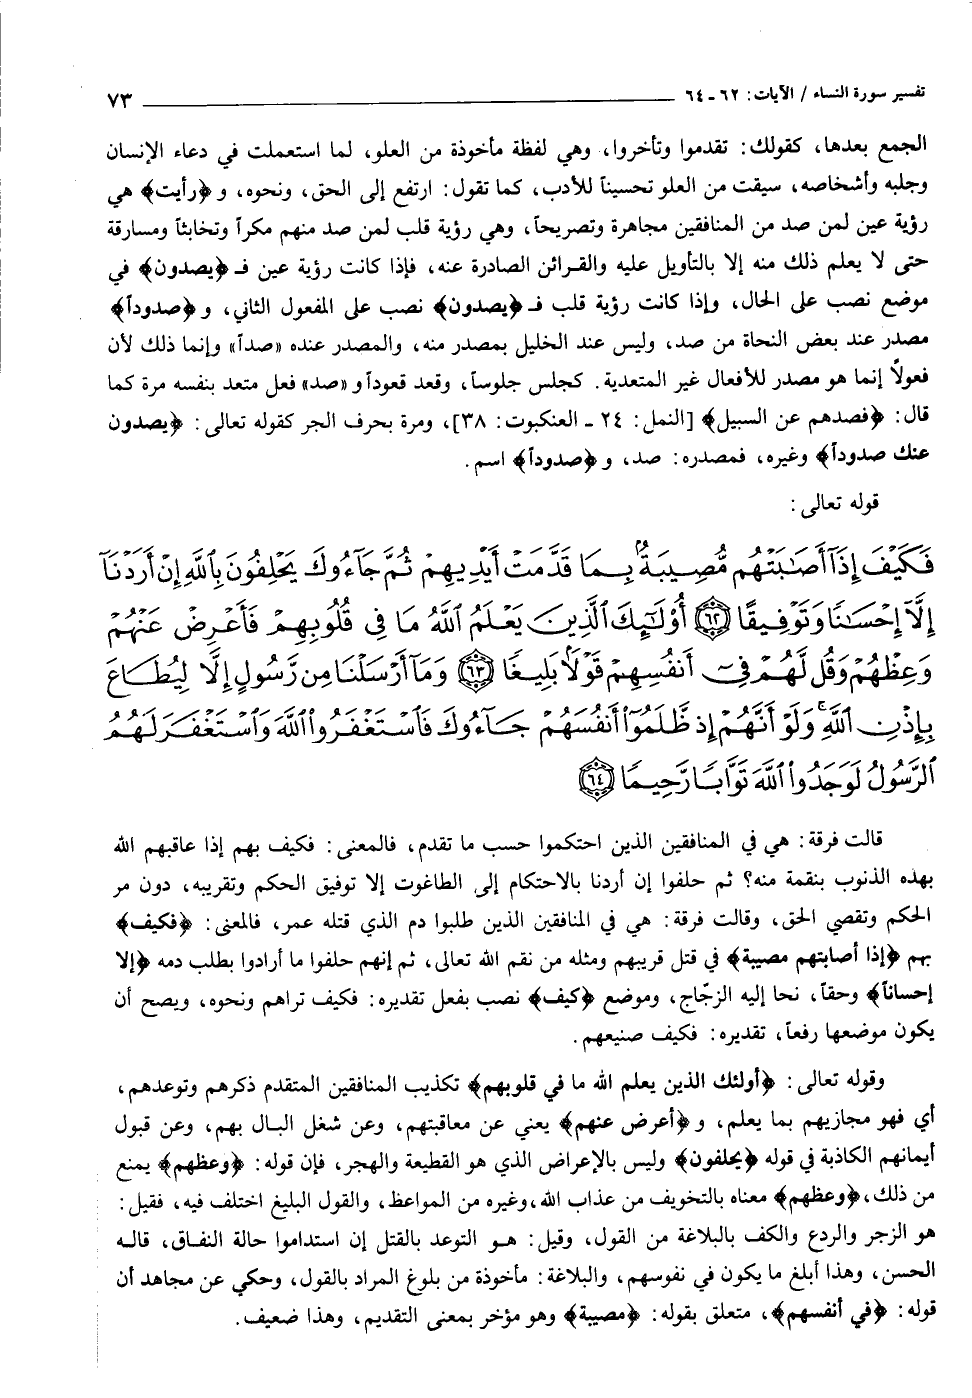 تفسير سورة النساء / الآيات: ٦٢ - ٦٤ ٧٣
الجمع بعدها، كقولك: تقدموا وتأخروا، وهي لفظة مأخوذة من العلو، لما استعملت في دعاء الإنسان
وجلبه وأشخاصه، سيقت من العلو تحسيناً للأدب، كما تقول: ارتفع إلى الحق، ونحوه، و ﴿رأيت﴾ هي
رؤية عين لمن صد من المنافقين مجاهرة وتصريحاً، وهي رؤية قلب لمن صد منهم مكراً وتخابثاً ومسارقة
حتى لا يعلم ذلك منه إلا بالتأويل عليه والقرائن الصادرة عنه، فإذا كانت رؤية عين فـ ﴿يصدون﴾ في
موضع نصب على الحال، وإذا كانت رؤية قلب فـ ﴿يصدون﴾ نصب على المفعول الثاني، و ﴿صدوداً﴾
مصدر عند بعض النحاة من صد، وليس عند الخليل بمصدر منه، والمصدر عنده «صداً» وإنما ذلك لأن
فعولاً إنما هو مصدر للأفعال غير المتعدية. كجلس جلوساً، وقعد قعوداً و «صد» فعل متعد بنفسه مرة كما
قال: ﴿فصدهم عن السبيل﴾ [النمل: ٢٤ - العنكبوت: ٣٨]، ومرة بحرف الجر كقوله تعالى: ﴿يصدون
عنك صدوداً﴾ وغيره، فمصدره: صد، و ﴿صدوداً﴾ اسم.
قوله تعالى:
فَكَيْفَ إِذَآ أَصَٰبَتْهُم مُّصِيبَةٌۢ بِمَا قَدَّمَتْ أَيْدِيهِمْ ثُمَّ جَآءُوكَ يَحْلِفُونَ بِٱللَّهِ إِنْ أَرَدْنَآ
إِلَّآ إِحْسَٰنًا وَتَوْفِيقًا ﴿٦٢﴾ أُوْلَٰٓئِكَ ٱلَّذِينَ يَعْلَمُ ٱللَّهُ مَا فِى قُلُوبِهِمْ فَأَعْرِضْ عَنْهُمْ
وَعِظْهُمْ وَقُل لَّهُمْ فِىٓ أَنفُسِهِمْ قَوْلًۢا بَلِيغًا ﴿٦٣﴾ وَمَآ أَرْسَلْنَا مِن رَّسُولٍ إِلَّا لِيُطَاعَ
بِإِذْنِ ٱللَّهِ ۚ وَلَوْ أَنَّهُمْ إِذ ظَّلَمُوٓا۟ أَنفُسَهُمْ جَآءُوكَ فَٱسْتَغْفَرُوا۟ ٱللَّهَ وَٱسْتَغْفَرَ لَهُمُ
ٱلرَّسُولُ لَوَجَدُوا۟ ٱللَّهَ تَوَّابًا رَّحِيمًا ﴿٦٤﴾
قالت فرقة: هي في المنافقين الذين احتكموا حسب ما تقدم، فالمعنى: فكيف بهم إذا عاقبهم الله
بهذه الذنوب بنقمة منه؟ ثم حلفوا إن أردنا بالاحتكام إلى الطاغوت إلا توفيق الحكم وتقريبه، دون مر
الحكم وتقصي الحق، وقالت فرقة: هي في المنافقين الذين طلبوا دم الذي قتله عمر، فالمعنى: ﴿فكيف﴾
بهم ﴿إذا أصابتهم مصيبة﴾ في قتل قريبهم ومثله من نقم الله تعالى، ثم إنهم حلفوا ما أرادوا بطلب دمه ﴿إلا
إحساناً﴾ وحقاً، نحا إليه الزجّاج، وموضع ﴿كيف﴾ نصب بفعل تقديره: فكيف تراهم ونحوه، ويصح أن
يكون موضعها رفعاً، تقديره: فكيف صنيعهم.
وقوله تعالى: ﴿أولئك الذين يعلم الله ما في قلوبهم﴾ تكذيب المنافقين المتقدم ذكرهم وتوعدهم،
أي فهو مجازيهم بما يعلم، و ﴿أعرض عنهم﴾ يعني عن معاقبتهم، وعن شغل البال بهم، وعن قبول
أيمانهم الكاذبة في قوله ﴿يحلفون﴾ وليس بالإعراض الذي هو القطيعة والهجر، فإن قوله: ﴿وعظهم﴾ يمنع
من ذلك، ﴿وعظهم﴾ معناه بالتخويف من عذاب الله، وغيره من المواعظ، والقول البليغ اختلف فيه، فقيل:
هو الزجر والردع والكف بالبلاغة من القول، وقيل: هو التوعد بالقتل إن استداموا حالة النفاق، قاله
الحسن، وهذا أبلغ ما يكون في نفوسهم، والبلاغة: مأخوذة من بلوغ المراد بالقول، وحكي عن مجاهد أن
قوله: ﴿في أنفسهم﴾، متعلق بقوله: ﴿مصيبة﴾ وهو مؤخر بمعنى التقديم، وهذا ضعيف.